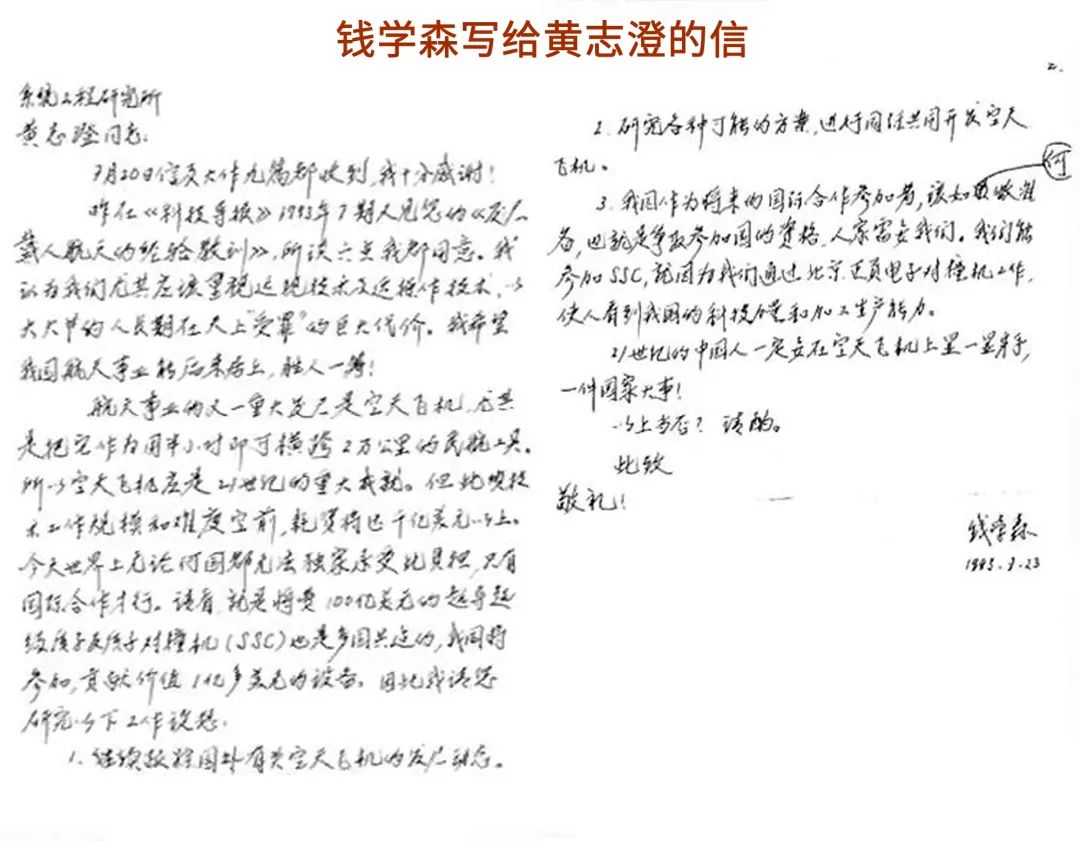 钱学森写给黄志澄的信
系统工程研究所
黄志澄同志:
7月20日信及大作九篇都收到,我十分感谢!
昨在《科技导报》1993年7期又见您的《发展
载人航天的经验教训》,所谈六点我都同意。我
认为我们尤其应该重视遥现技术及遥操作技术,以
大大节约人长期在天上“受罪”的巨大代价。我希望
我国航天事业能后来居上,胜人一筹!
航天事业的又一重大发展是空天飞机,尤其
是把它作为用半小时即可横跨2万公里的民航工具。
所以空天飞机应是21世纪的重大成就。但此项技
术工作规模和难度空前,耗资将达千亿美元以上。
今天世界上无论何国都无法独家承受此负担,只有
国际合作才行。请看,就是将费100亿美元的超导超
级质子反质子对撞机(SSC)也是多国共造的,我国将
参加,贡献价值1亿多美元的设备。因此我请您
研究以下工作设想:
1. 继续跟踪国外有关空天飞机的发展动态。
2.
2. 研究各种可能的方案,进行国际共同开发空天
飞机。
何
3. 我国作为将来的国际合作参加者,该如
备,也就是争取参加国的资格,人家需要我们。我们能
参加SSC,就因为我们通过北京正负电子对撞机工作,
使人看到我国的科技能量和加工生产能力。
21世纪的中国人一定要在空天飞机上显一显身手,
一件国家大事!
以上当否?请酌。
此致
敬礼!
钱学森
1993.7.23